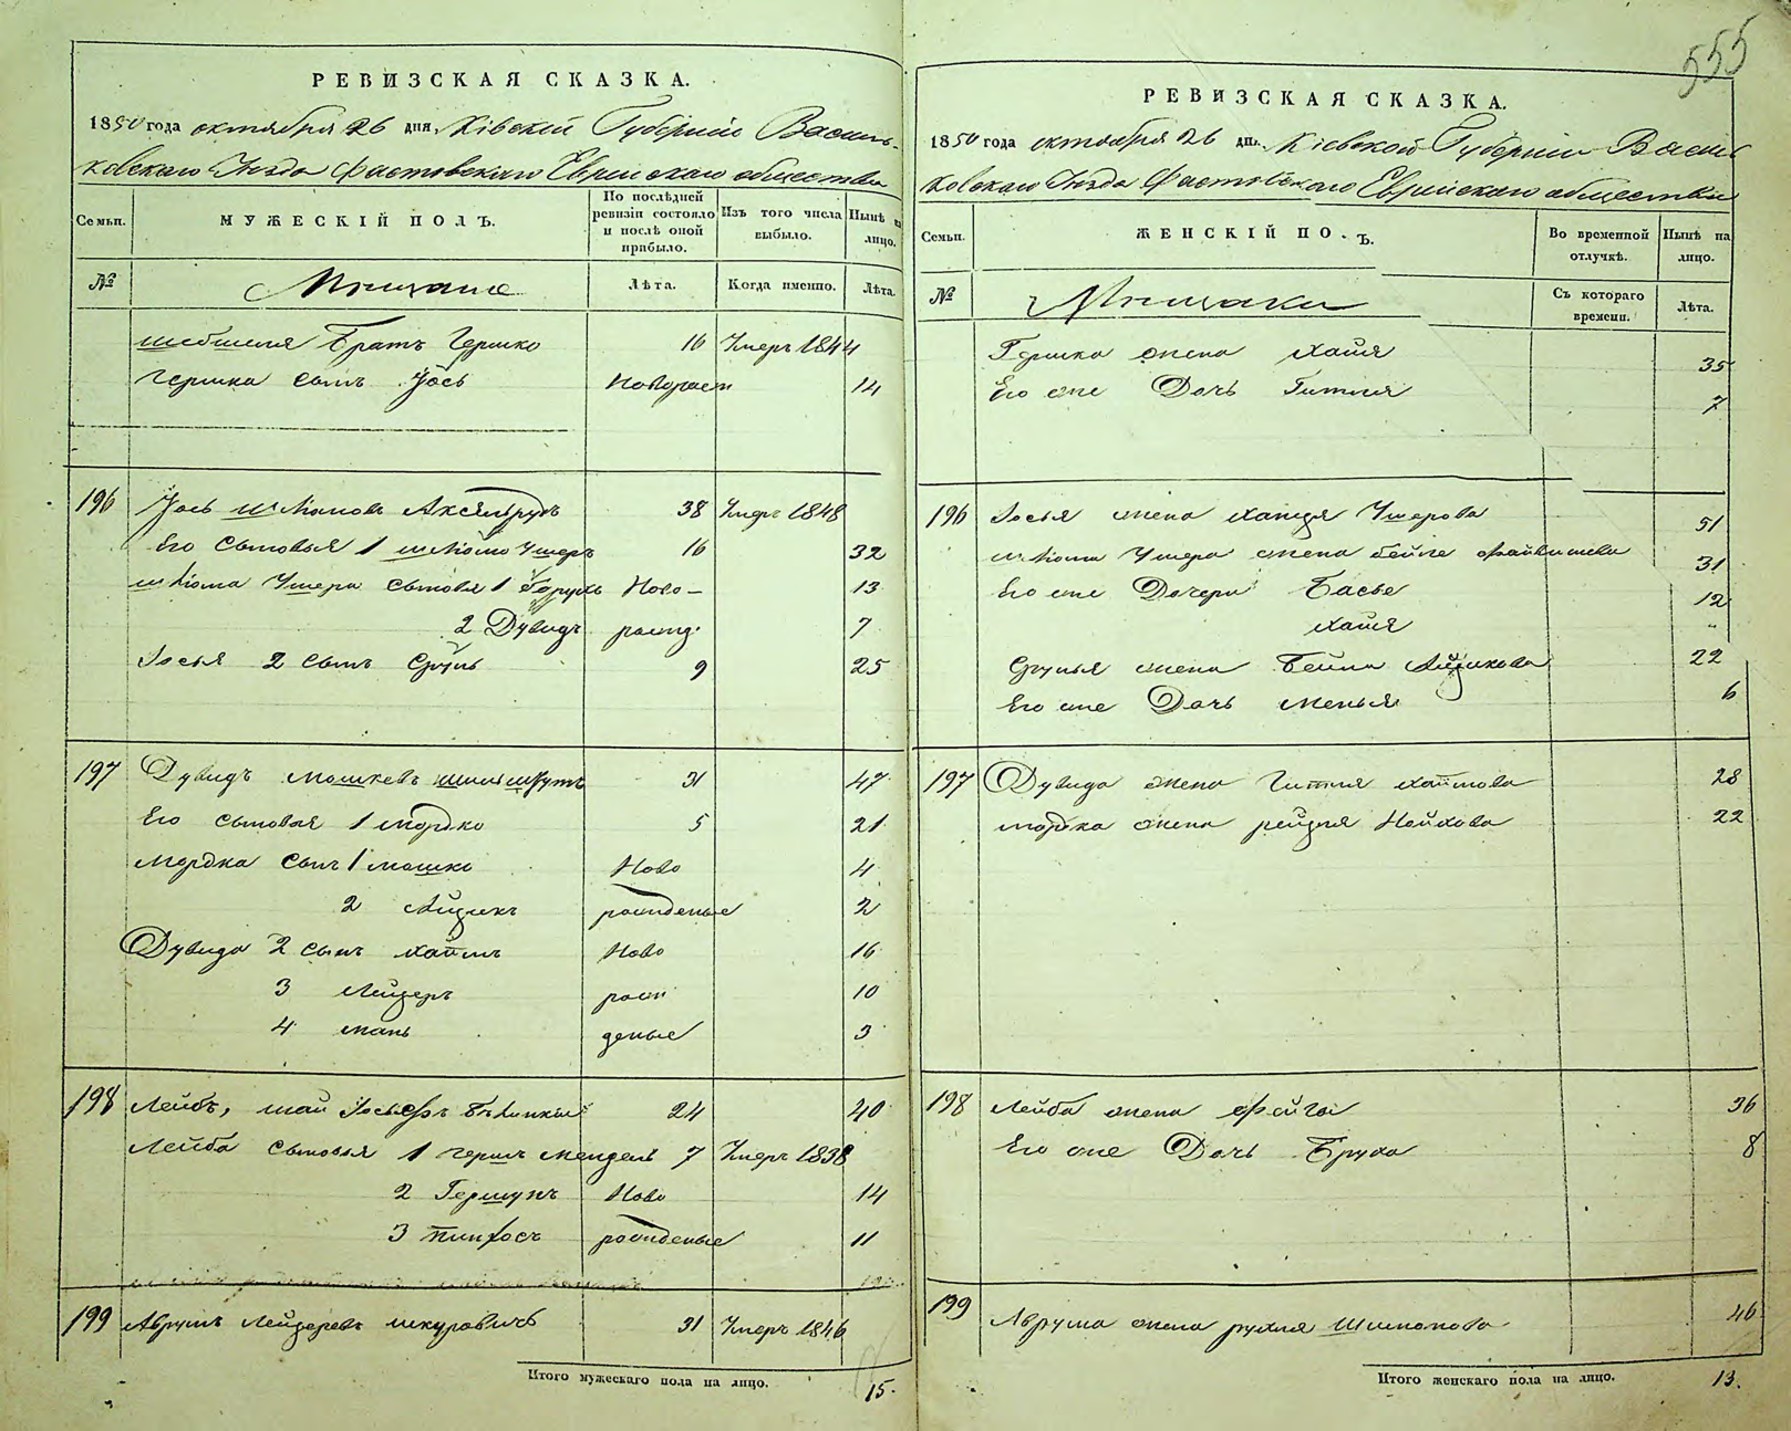 555
РЕВИЗСКАЯ СКАЗКА.
1850 года октября 26 дня. Кіевской Губерніи Василь-
ковскаго Уезда Фастовскаго Еврейскаго общества
Семьи. МУЖЕСКІЙ ПОЛЪ. По послѣдней ревизіи состояло и послѣ оной прибыло. Изъ того числа выбыло. Нынѣ на лицо.
№ Мещане Лѣта. Когда именно. Лѣта.
Брать Гершко 16 Умеръ 1844
Гершка сынъ Іось новорож 14
196 Іось Аксельрудъ 38 Умеръ 1848
Его сыновья 1 Шліома Ушеръ 16 32
Шліома Ушера сыновья 1 Ново- 13
2 Дувидъ рожд. 7
Іосья 2 сынъ Сруль 9 25
197 Дувидъ Мошковъ 31 47
Его сыновья 1 Мордко 5 21
Мордка сынъ 1 Мошко Ново 4
2 Айзикъ рожденые 2
Дувида 2 сынъ Хаимъ Ново 16
3 Лейзеръ рож 10
4 деные 3
198 Лейбъ, Іосьефъ 24 40
Лейба сыновья 1 Герш Мендель 7 Умеръ 1838
2 Гершунъ Ново 14
3 Пинхосъ рожденые 11
199 Аврумъ Лейзеровъ Шкуровичъ 31 Умеръ 1846
Итого мужескаго пола на лицо. 15.
РЕВИЗСКАЯ СКАЗКА.
1850 года октября 26 дня. Кіевской Губерніи Василь
ковскаго Уезда Фастовскаго Еврейскаго общества
Семьи. ЖЕНСКІЙ ПО.Ъ. Во временной отлучкѣ. Нынѣ на лицо.
№ Мещанки Съ котораго времени. Лѣта.
Гершка жена Хаия 35
Его же Дочь Гитля 7
196 Іосья жена Ушерова 51
Шліома Ушера жена Бейля Файвишева 31
Его же Дочери Бася 12
Хая "
Срулья жена Бейла Айзикова 22
Его же Дочь Менья 6
197 Дувида жена Гитля Хаимова 28
Мордка жена Рейзля 22
198 Лейба жена Фейга 36
Его же Дочь Бруха 8
199 Аврума жена Рухля Шимонова 46
Итого женскаго пола на лицо. 13.